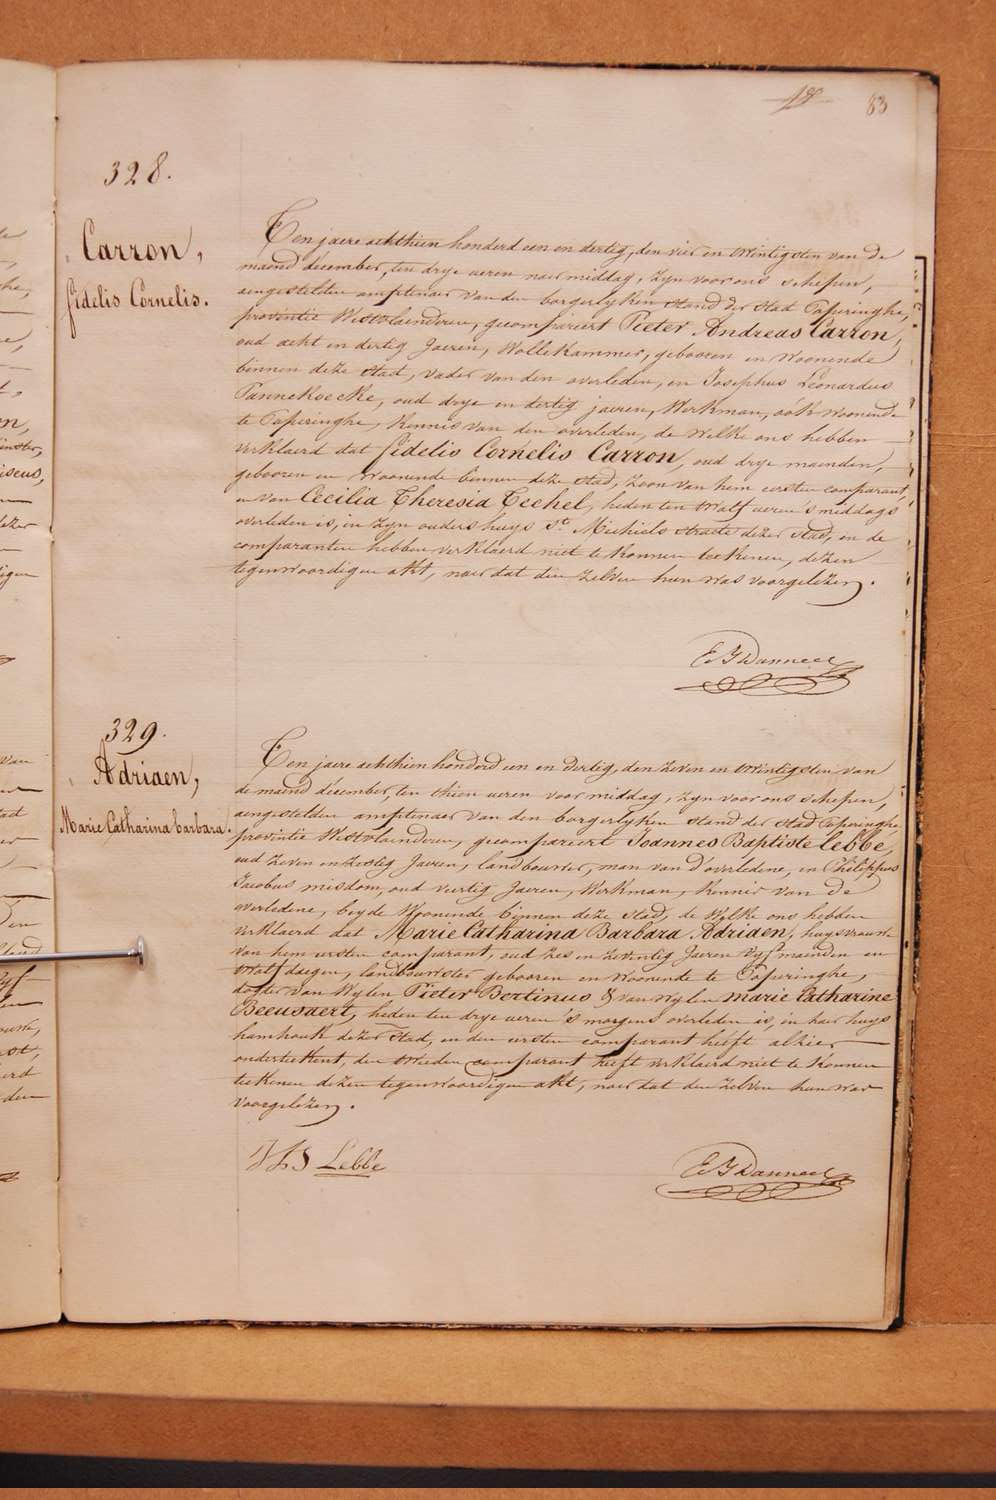 83
328.
Carron,
fidelis Cornelis.
Ten jaere achthien honderd een en dertig, den vier en twintigsten van de
maend december, ten drye ueren naer middag, zyn voor ons schepen,
aengestelden amptenaer van den borgerlyken stand der stad Poperinghe,
provintie Westvlaenderen, gecompareert Pieter Andreas Carron,
oud acht en dertig Jaeren, Wollekammer, gebooren en Woonende
binnen deze stad, vader van den overleden, en Josephus Leonardus
Pannekoecke, oud drye en dertig jaeren, Werkman, oók woonende
te Poperinghe, Kennis van den overleden, de welke ons hebben
verklaerd dat fidelis Cornelis Carron, oud drye maenden,
gebooren en Woonende binnen deze stad, zoon van hem eersten comparant,
en van Cecilia Theresia Techel, heden ten twalf ueren 's middags
overleden is, in zyn ouders huys St. Michiels straete dezer stad, en de
comparanten hebben verklaerd niet te konnen teekenen, dezen
tegenwoordigen akt, naer dat den zelven hun was voorgelezen.
E J Danneel
329.
Adriaen,
Marie Catharina barbara.
Ten jaere achthien honderd een en dertig, den zeven en twintigsten van
de maend december, ten thien ueren voor middag, zyn voor ons schepen,
aengestelden amptenaer van den borgerlyken stand der stad Poperinghe,
provintie Westvlaenderen, gecompareert Joannes Baptiste lebbe,
oud zeven en zestig Jaeren, landbouwer, man van d'overledene, en Philippus
Jacobus misdom, oud veertig Jaeren, Werkman, Kennis van de
overledene, beyde Woonende binnen deze stad, de Welke ons hebben
verklaerd dat Marie Catharina Barbara Adriaen, huysvrouwe
van hem eersten comparant, oud zes en zeventig Jaeren vyf maenden en
twalf daegen, landbouwster gebooren en woonende te Poperinghe,
dogter van Wylen Pieter Bertinus & van wylen marie Catharine
Beeusaert, heden ten drye ueren 's morgens overleden is, in haer huys
hamhouk dezer stad, en den eersten comparant heeft alhier
onderteekent, den tweeden comparant heeft verklaerd niet te konnen
teekenen dezen tegenwoordigen akt, naer dat den zelven hun was
voorgelezen.
Lebbe
E J Danneel